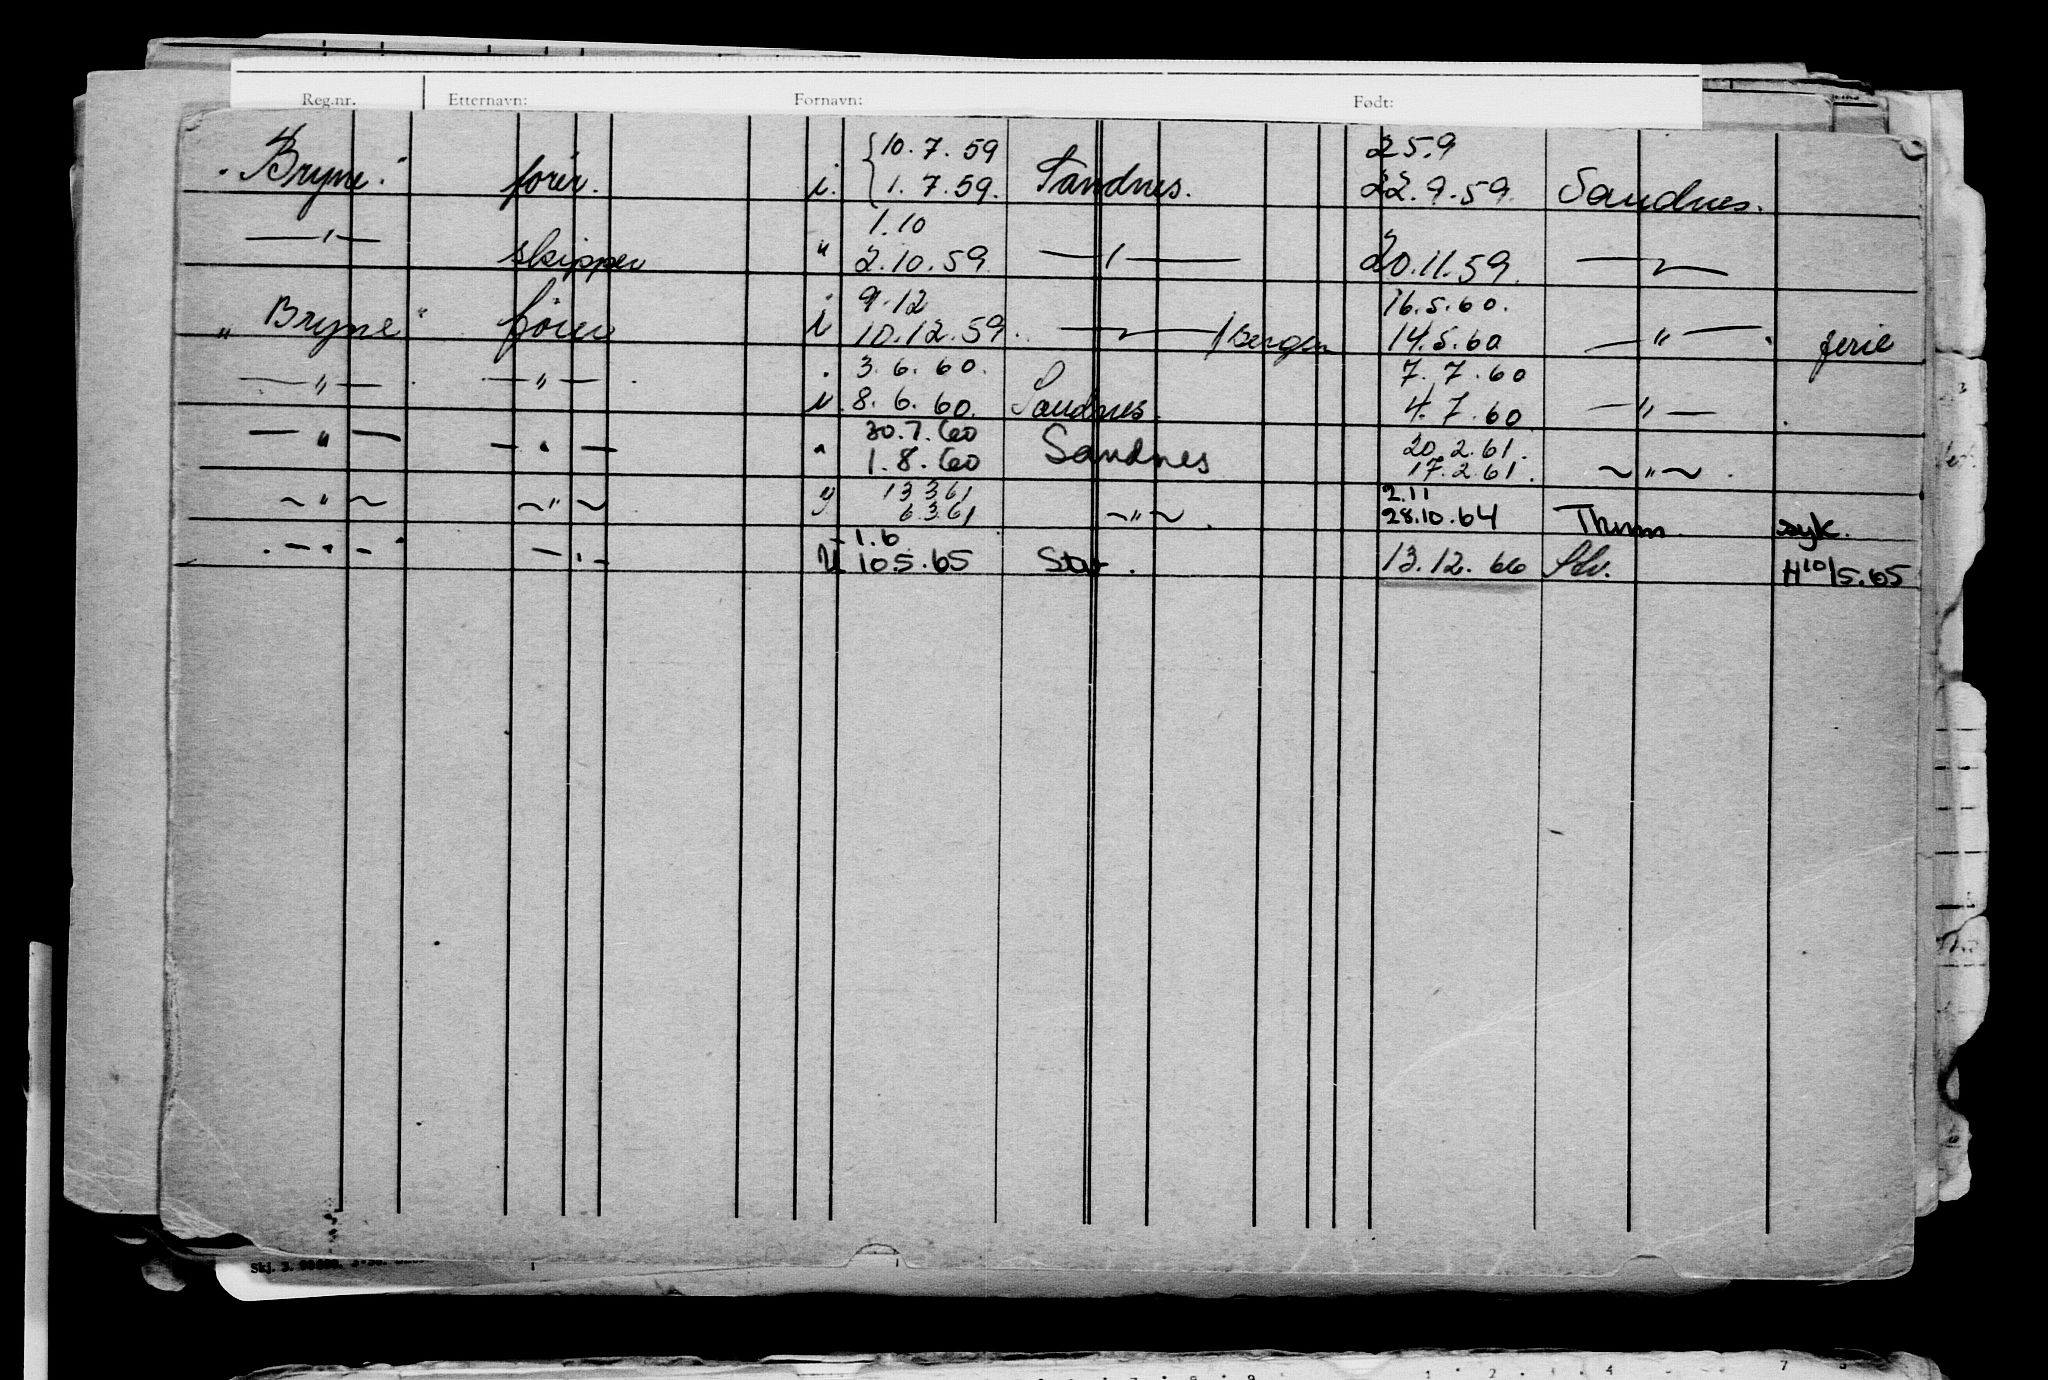 Reg.nr. Etternavn: Fornavn: Født:
10.7.59 25.9
"Bryne" fører. i. 1.7.59. Sandnes. 22.9.59. Sandnes.
1.10
—"— skipper " 2.10.59 —"— 20.11.59. —"—
9.12 16.5.60.
"Bryne" fører i 10.12.59. —"— / Bergen 14.5.60 —"— ferie
3.6.60. 7.7.60
—"— —"— i 8.6.60. Sandnes. 4.7.60 —"—
30.7.60 20.2.61.
—"— —"— " 1.8.60 Sandnes 17.2.61. ~"~
13.3.61 2.11
~"~ ~"~ y 6.3.61 ~"~ 28.10.64 Thmn. syk.
1.6
—"— —"— y 10.5.65 Stv. 13.12.66 Stv. H10/5.65
Skj. 3.